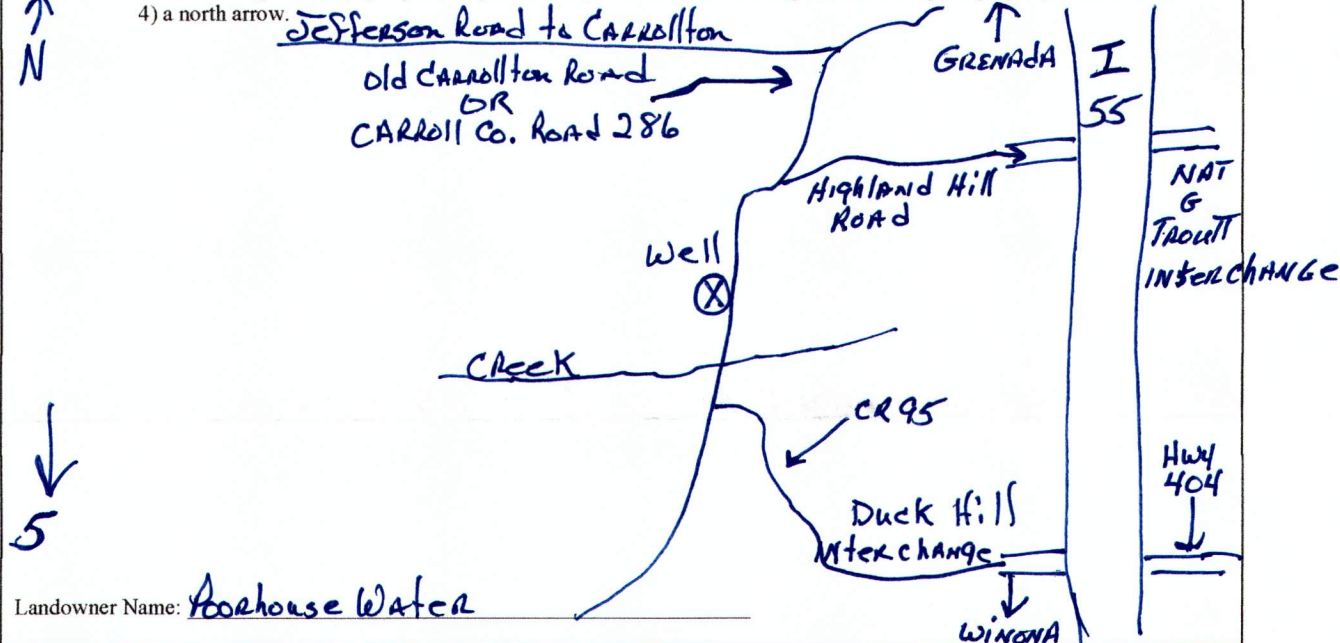 N
4) a north arrow.
Jefferson Road to Carrollton
Old Carrollton Road
OR
Carroll Co. Road 286
Grenada
I
55
Highland Hill
Road
NAT
G
Troutt
Interchange
Well
X
Creek
CR 95
Hwy
404
Duck Hill
Interchange
S
Landowner Name: Poorhouse Water
Winona